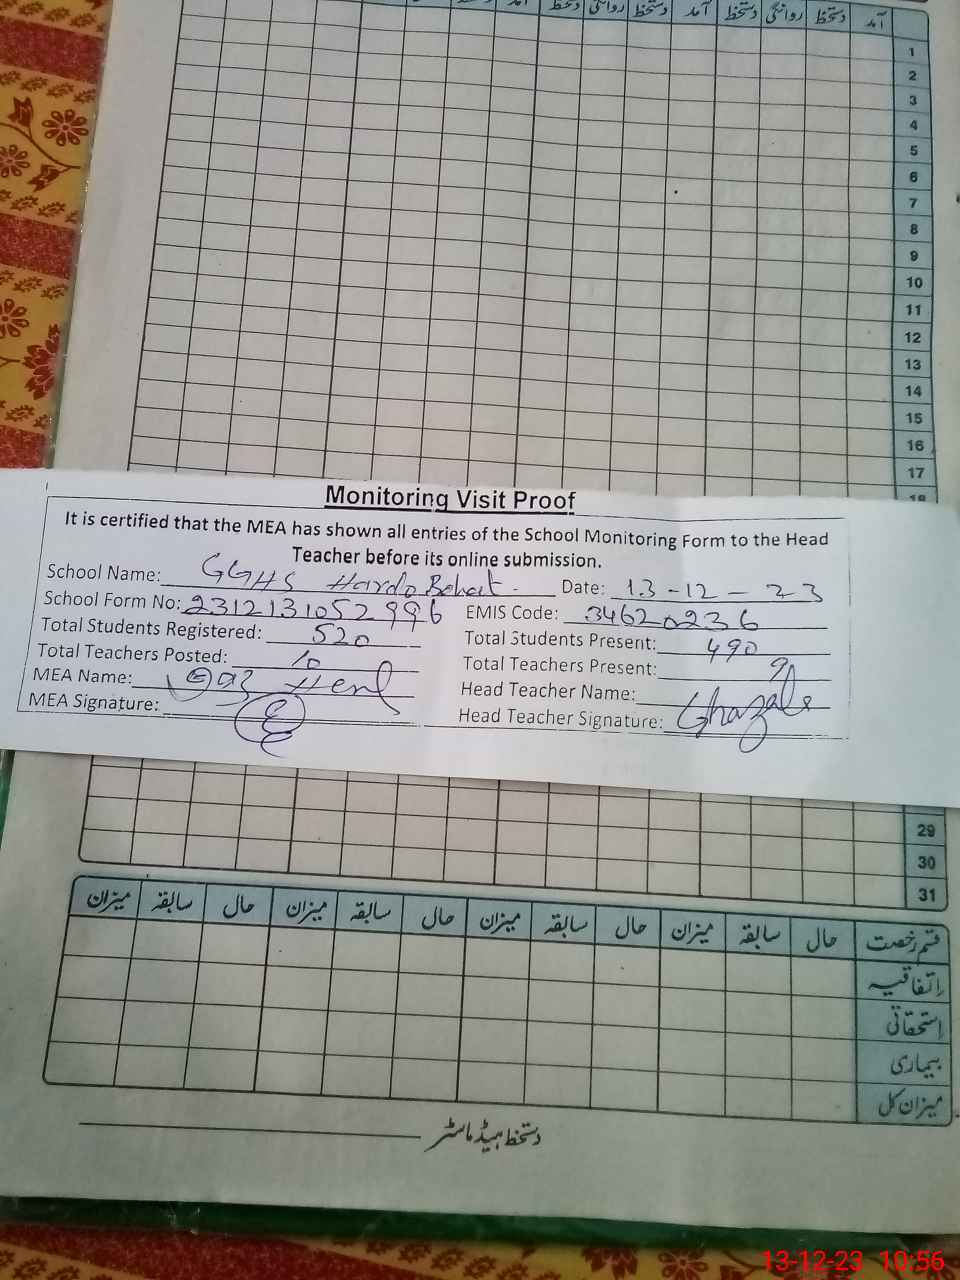 آمد دستخط روانگی دستخط آمد دستخط روانگی دستخط آمد
1
2
3
4
5
6
7
8
9
10
11
12
13
14
15
16
17
18
Monitoring Visit Proof
It is certified that the MEA has shown all entries of the School Monitoring Form to the Head
Teacher before its online submission.
School Name: GGHS Hardo Bohat. Date: 13-12-23
School Form No: 2312131052996 EMIS Code: 34620236
Total Students Registered: 520 Total Students Present: 490
Total Teachers Posted: 10 Total Teachers Present: 9
MEA Name: Head Teacher Name:
MEA Signature: Head Teacher Signature: Ghazala
29
30
31
قسم رخصت حال سابقہ میزان حال سابقہ میزان حال سابقہ میزان حال سابقہ میزان
اتفاقیہ
استحقاقی
بیماری
میزان کل
دستخط ہیڈ ماسٹر
13-12-23 10:56